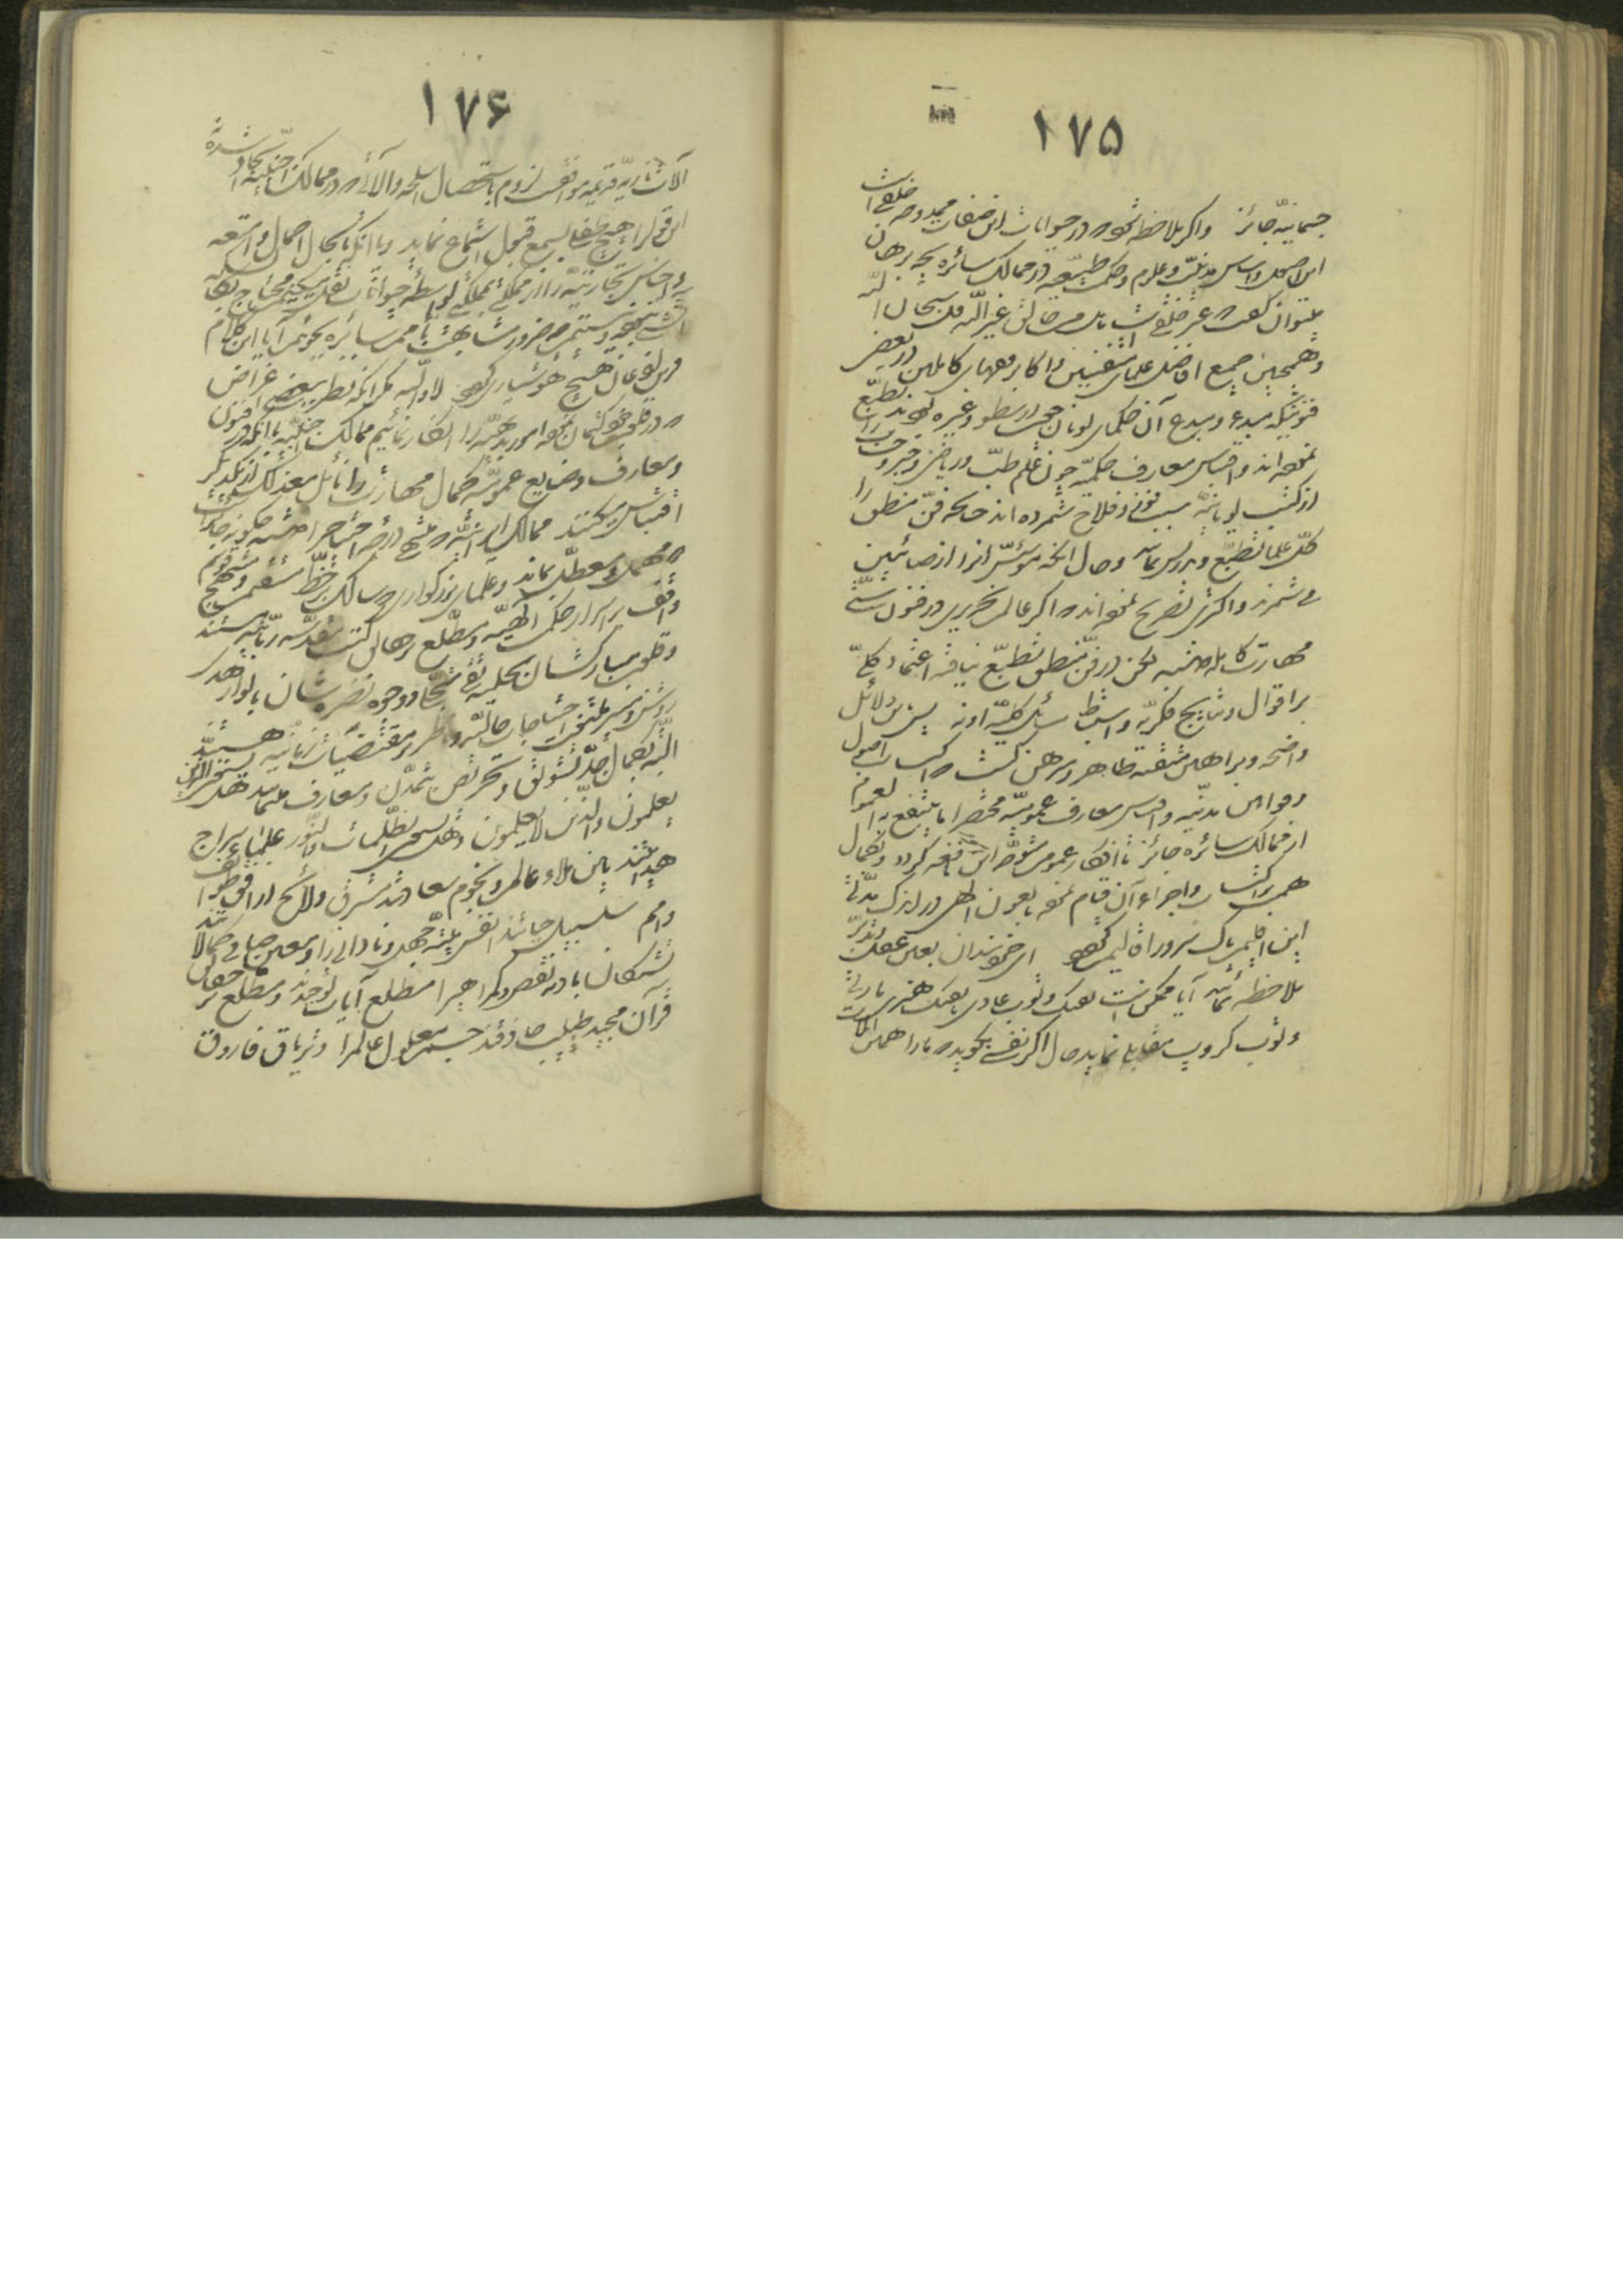 ۱۷۵
جسمانیّه جائز و اگر ملاحظه شود که در حیوانات این صفات ممدوحه خلقی است
این اصول و اساس مدنیّت و علوم و حکمت طبیعیّه در ممالک سائره بچه برهان
میتوان گفت که غیر خلقی است بل من خالق غیر اللّه قل سبحان اللّه
و همچنین جمیع افاضل علمای متفنّنین و اکابر فقهای کاملین در بعضی
فنونیکه مبدء و مبدع آن حکمای یونان چون ارسطو و غیره بودند تطبّع
نموده اند و اقتباس معارف حکمیّه چون علم طبّ و ریاضی و جبر و حساب را
از کتب یونانیّه سبب فوز و فلاح شمرده اند چنانچه فنّ منطق را
کلّ علما تطبّع و تدریس نمایند و حال آنکه مؤسّس آنرا از صائبین
می شمرند و اکثری تصریح نموده اند که اگر عالم نحریری در فنون شتّی
مهارت کامله داشته لکن در فنّ منطق تطبّع نیافته اعتماد کلّی
بر اقوال و نتایج فکریّه و استنباط مسائل کلیّهٔ او نه پس باین دلائل
واضحه و براهین متقنه ظاهر و مبرهن گشت که اکتساب اصول
و قوانین مدنیّه و اقتباس معارف عمومیّه مختصرا ما ینتفع به العموم
از ممالک سائره جائز تا افکار عموم متوجّه این امور نافعه گردد و بکمال
همّت بر اکتساب و اجراء آن قیام نموده تا بعون الهی در اندک مدّتی
این اقلیم پاک سرور اقالیم گردد ای خردمندان بعین عقل و تدبّر
ملاحظه نمائید آیا ممکن است تفنگ و توپ عادی با تفنگ هنری مارتی
و توپ کروپ مقابلی نماید حال اگر نفسی بگوید که ما را همین
۱۷۶
آلات ناریّه قدیمه موافقست لزوم باستحصال اسلحه و آلاتی که در ممالک اجنبیّه ایجاد شده
این قول را هیچ طفلی بسمع قبول استماع نماید و یا آنکه ما بحال احمال و امتعه
و اجناس تجاریّه را از مملکتی بمملکتی بواسطه حیوانات نقل میکنیم محتاج
چه ضرورت مشابهت بامم سائره بجوئیم آیا این کلام
مقرون اذعان هیچ هوشیاری گردد لا واللّه مگر آنکه نظر ببعضی اغراض
که در قلوب خود کتمان نموده امور بدیهیّه را انکار نمائیم ممالک اجنبیّه با آنکه در فنون
و معارف و صنایع عمومیّه کمال مهارت را نائل معذلک از یکدیگر
اقتباس میکنند ممالک ایران که منتهی درجهٔ احتیاج را داشته چگونه جائز است
که مهمل و معطّل بماند و علمای بزرگوار که سالک بر خطّ مستقیم و منهج قویم
و واقف بر اسرار حکمت الهیّه و مطّلع بر حقائق کتب مقدّسهٔ ربّانیّه هستند
و قلوب مبارکشان بحلیهٔ تقی متحلّی و وجوه نضره شان بانوار هدی
روشن و منیر ملتفت احتیاجات حالیّه و ناظر بر مقتضیات زمانیّه هستند
البتّه بکمال جدّ تشویق و تحریص تمدّن و معارف مینمایند هل یستوی الّذین
یعلمون و الّذین لا یعلمون و هل یستوی الظّلمات و النّور علما سراج
هدایتند بین ملأ عالم و نجوم سعادتند مشرق و لائح از افق طوائف
و امم سلسبیل حیاتند انفس میّتهٔ جهل و نادانی را و معین صافی کمالاتند
تشنگان بادیه نقص و گمراهی را مطلع آیات توحیدند و مطّلع بر حقائق
قرآن مجید طبیب حاذقند جسم معلول عالم را و تریاق فاروق